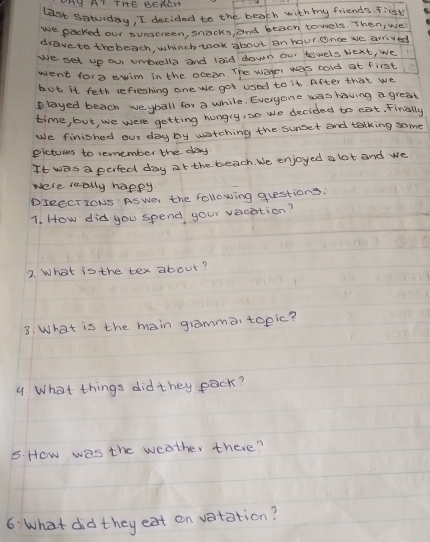 DAY AT THE BEACH
Last Saturday, I decided to the beach with my friends. First
we packed our sunscreen, snacks, and beach towels. Then, we
drave to the beach, whinch took about an hour. Once we arrived
we set up our umbrella and laid down our towels. Next, we
went for a swim in the ocean. The water was cold at first
but it felh refreshing one we got used to it. After that we
played beach weyball for a while. Everyone was having a great
time, but, we were getting hungry, so we decided to eat. Finally
we finished our day by watching the sunset and talking some
pictures to remember the day
It was a perfect day at the beach. We enjoyed a lot and we
were really happy
DIRECTIONS: Aswer the following questions:
1. How did you spend your vacation?
2. What is the tex about?
3. What is the main grammar topic?
4. What things did they pack?
5. How was the weather there?
6. What did they eat on vatation?